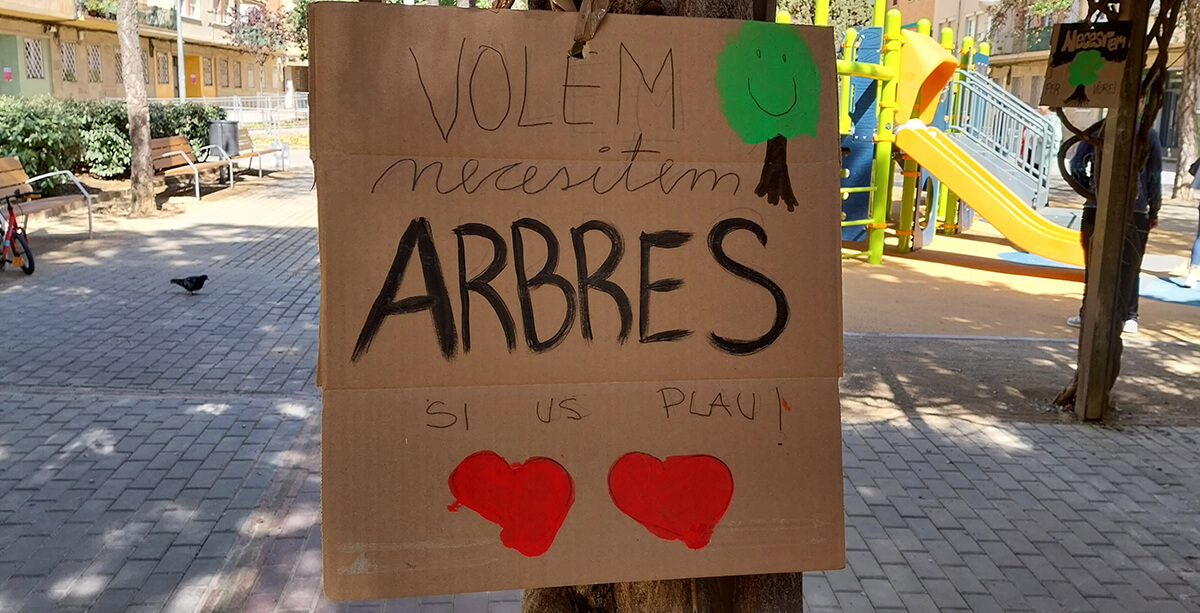 VOLEM
necesitem
ARBRES
SI US PLAU!
NecesiTem
PER VIURE!